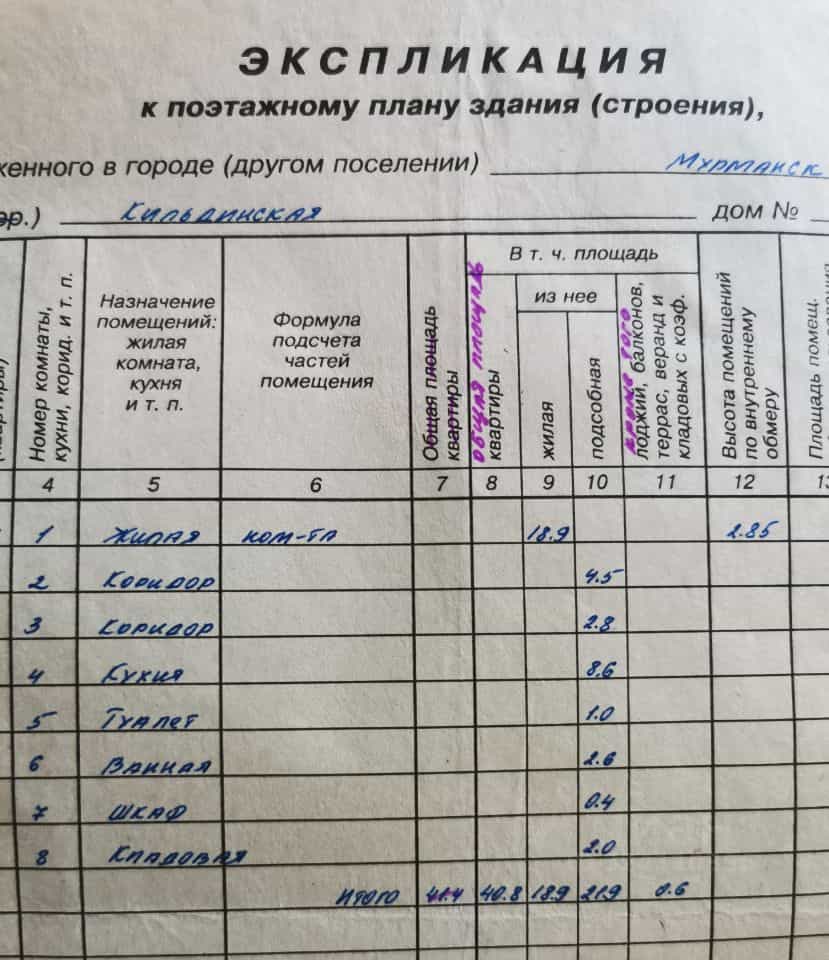 ЭКСПЛИКАЦИЯ
к поэтажному плану здания (строения),
женного в городе (другом поселении) Мурманск
ер.) Кильдинская дом №
Номер комнаты, кухни, корид. и т. п.
Назначение помещений: жилая комната, кухня и т. п.
Формула подсчета частей помещения
Общая площадь квартиры
общая площадь квартиры
В т. ч. площадь
из нее
жилая
подсобная
кроме того лоджий, балконов, террас, веранд и кладовых с коэф.
Высота помещений по внутреннему обмеру
Площадь помещ.
4 5 6 7 8 9 10 11 12 13
1 Жилая ком-та 18.9 2.85
2 Коридор 4.5
3 Коридор 2.8
4 Кухня 8.6
5 Туалет 1.0
6 Ванная 2.6
7 Шкаф 0.4
8 Кладовая 2.0
Итого 41.4 40.8 18.9 21.9 0.6